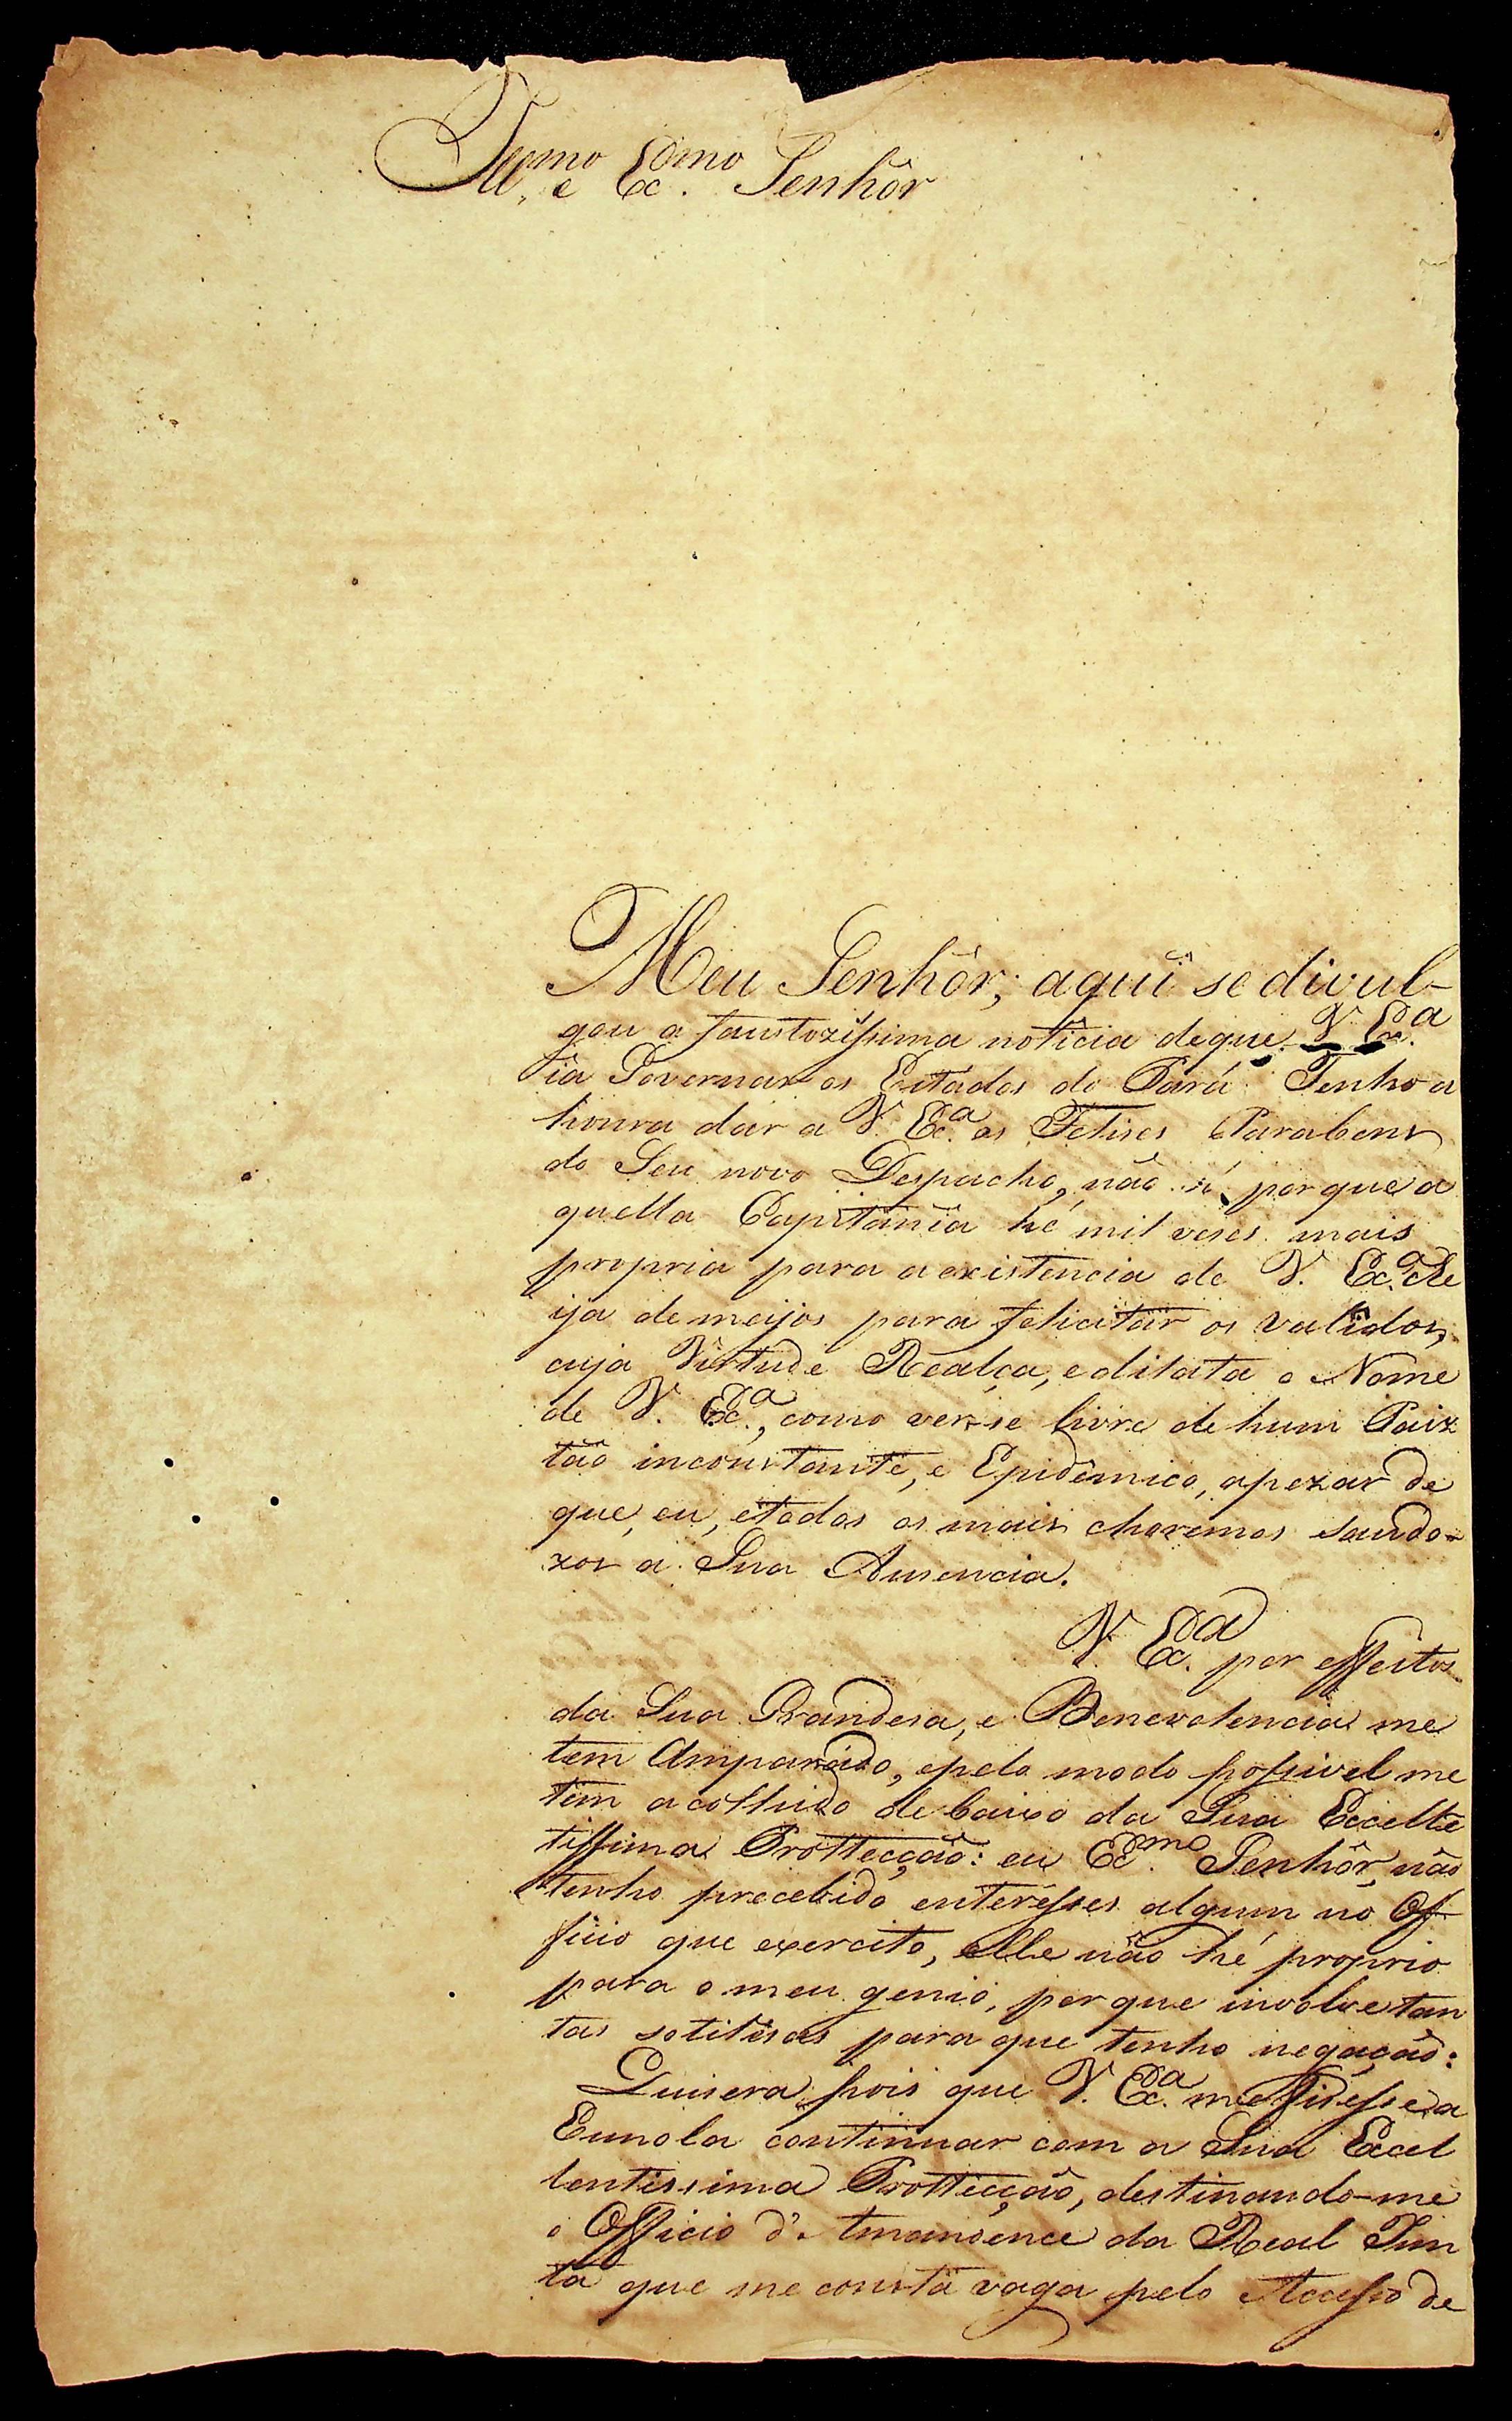 Ill.mo e Ex.mo Senhôr
Meu Senhôr; aqui se divul-
gou a faustozissima noticia deque V. Ex.a
ia Governar os Estados do Pará. Tenho a
honra dar a V. Ex.a os Felises Parabens
do Seu novo Despacho, não só porque a
quella Capitania hé mil veses mais
propria para a existencia de V. Ex.a
ija de meijos para felicitar os validos,
cuja Virtude Realça, e dilata o Nome
de V. Ex.a, como ver-se livre de hum Paiz
tão inconstante, e Epidêmico, apezar de
que, eu, etodos os mais choremos saudo-
zos a Sua Ausencia.
V. Ex.a por effeitos
da Sua Grandesa, e Benevolencia me
tem Amparado, epelo modo possivel me
tem acolhido debaixo da Sua Excelle
tissima Prottecção: eu Ex.mo Senhôr, não
tenho precebido enterésses algum no Of
ficio que exercito, elle não hé proprio
para o meu genio, porque involve tan
tas sotilisas para que tenho negação:
Quisera pois que V. Ex.a me fisesse a
Esmola continuar com a Sua Excel
lentissima Prottecção, destinando-me
o Officio d'Amanuence da Real Jun
ta que me consta vaga pelo Accesso de